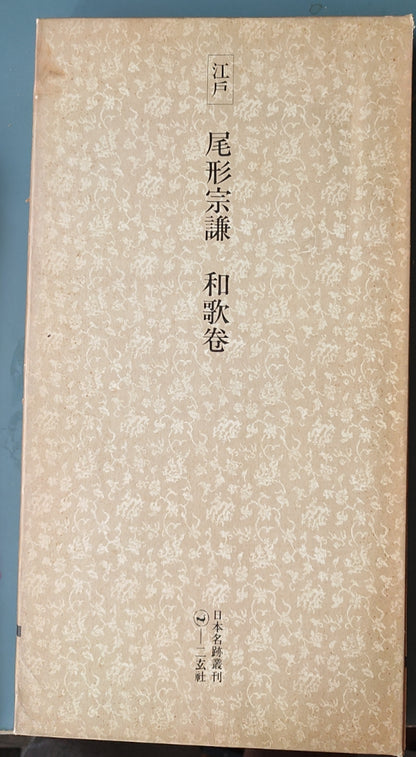 江戸
尾形宗謙 和歌巻
日本名跡叢刊
二玄社